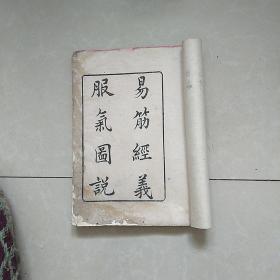 易筋經義
服氣圖說